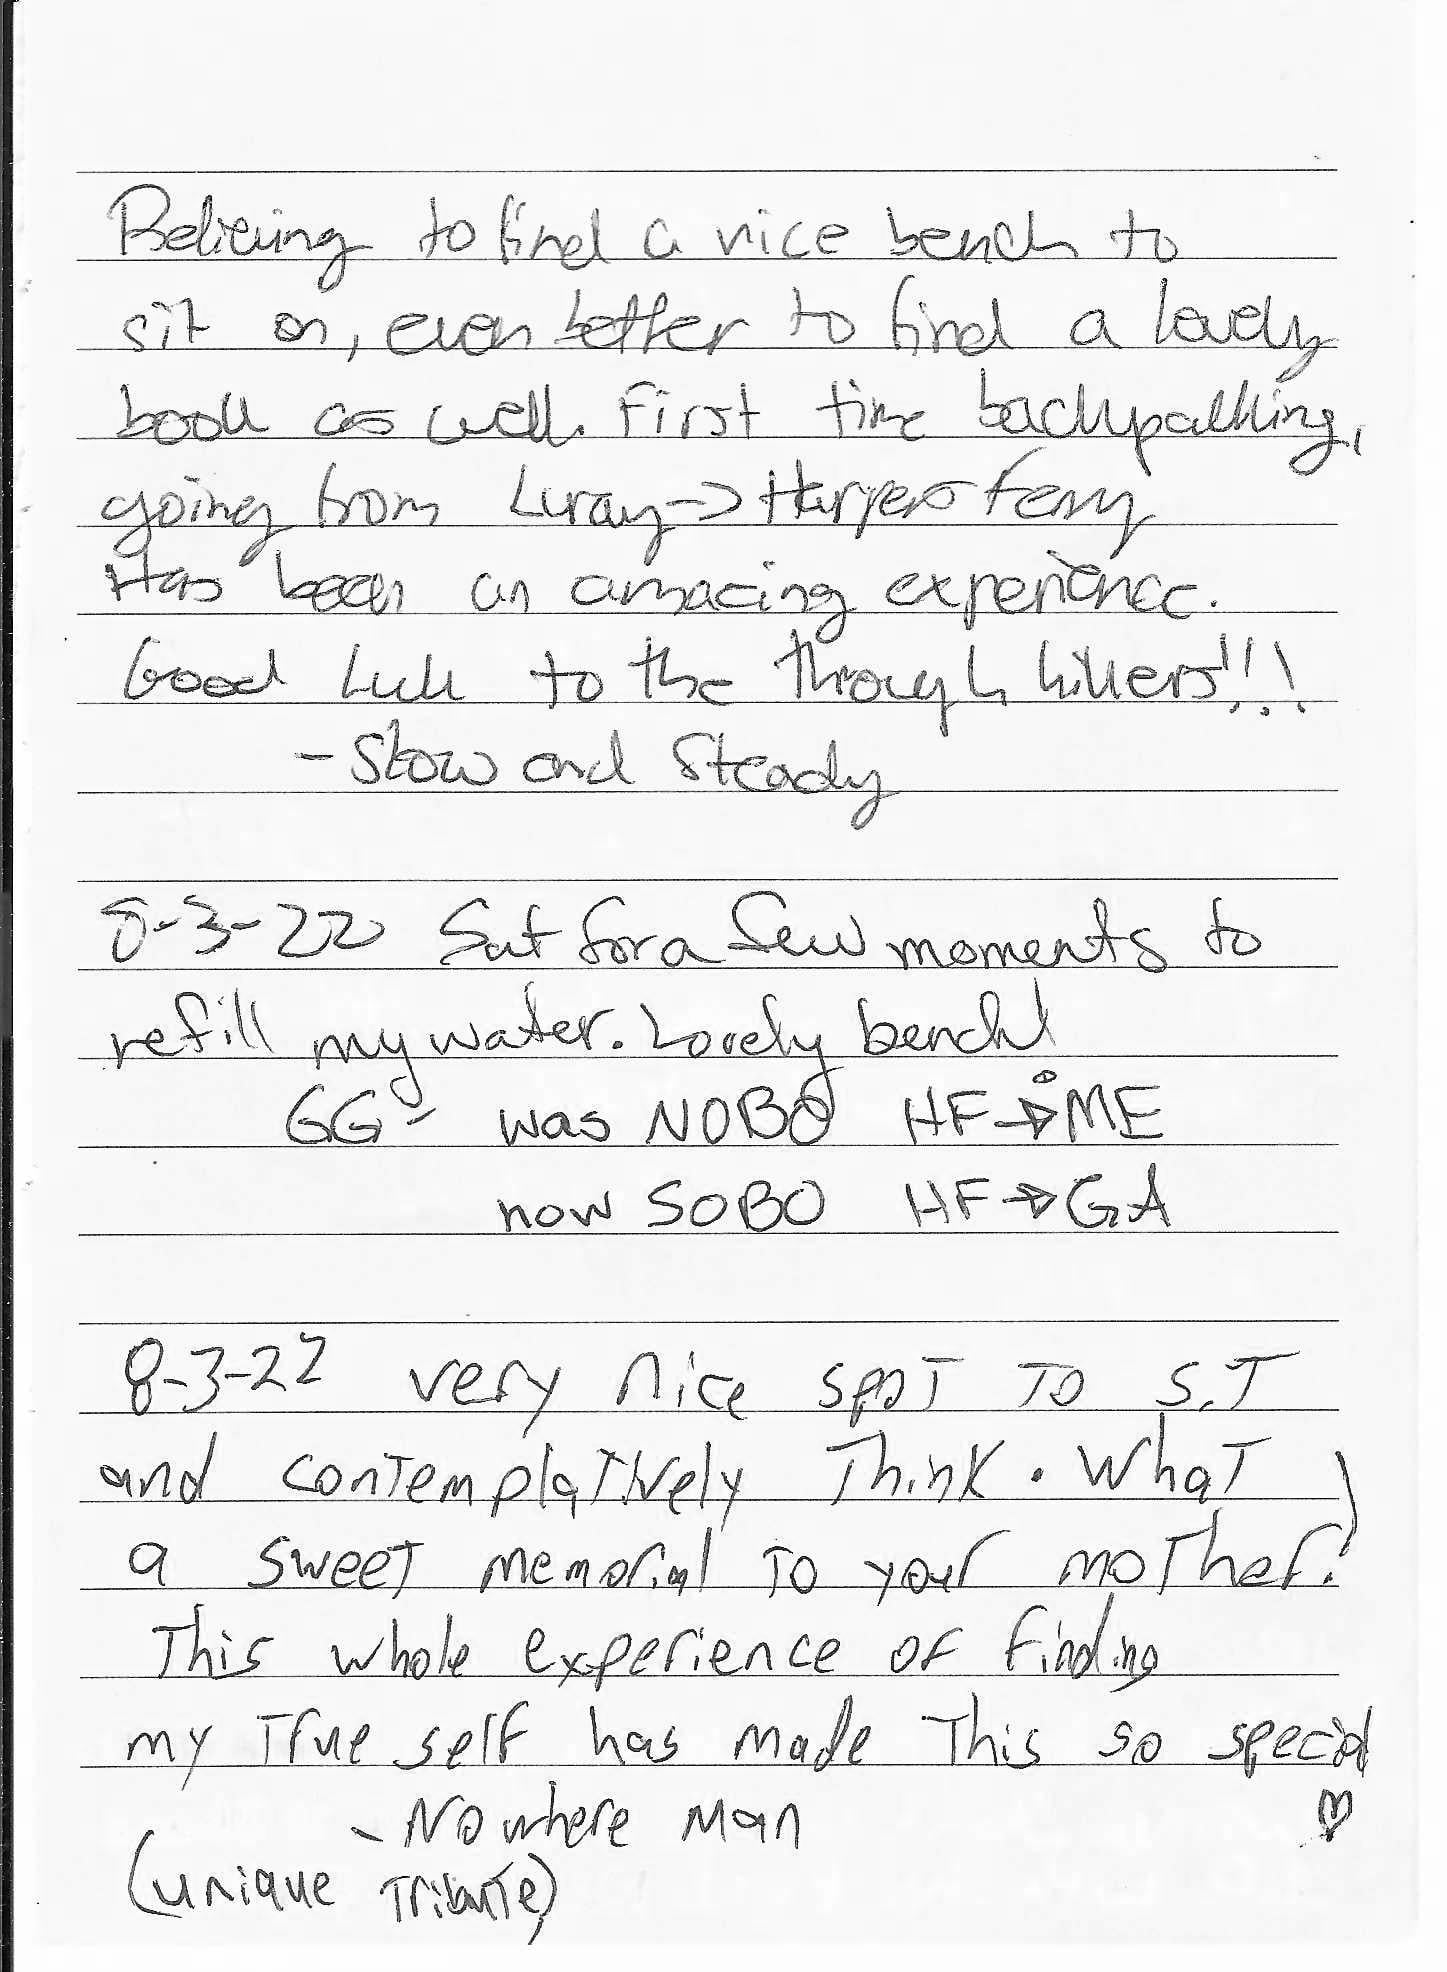 Relieving to find a nice bench to
sit on, even better to find a lovely
book as well. First time backpacking,
going from Luray -> Harpers Ferry
Has been an amazing experience.
Good luck to the through hikers!!!
- Slow and Steady
8-3-22 Sat for a few moments to
refill my water. Lovely bench!
GG - was NOBO HF -> ME
now SOBO HF -> GA
8-3-22 very nice spot to sit
and contemplatively think. What
a sweet memorial to your mother!
This whole experience of finding
my true self has made this so special
- Nowhere Man ♡
(unique tribute)